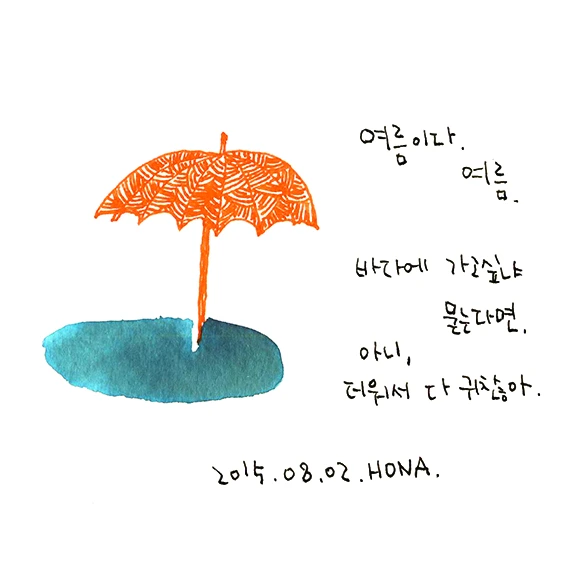 여름이다.
여름.
바다에 가고싶냐
묻는다면,
아니,
더워서 다 귀찮아.
2015.08.02.HONA.